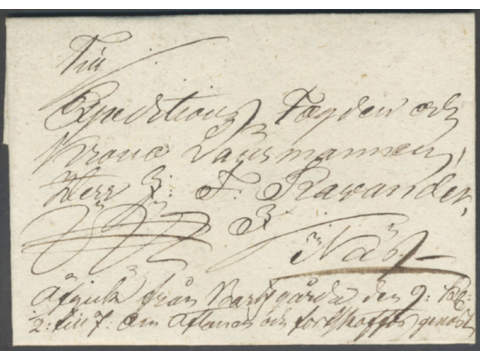 Till
Expeditions Fogden och
Krono Länsmannen,
Herr Z: F: Ravander,
Z
Näs
Afgick från Bartsgårda den 9:
2: till 7: Om Aftonen och fortskaffas genast